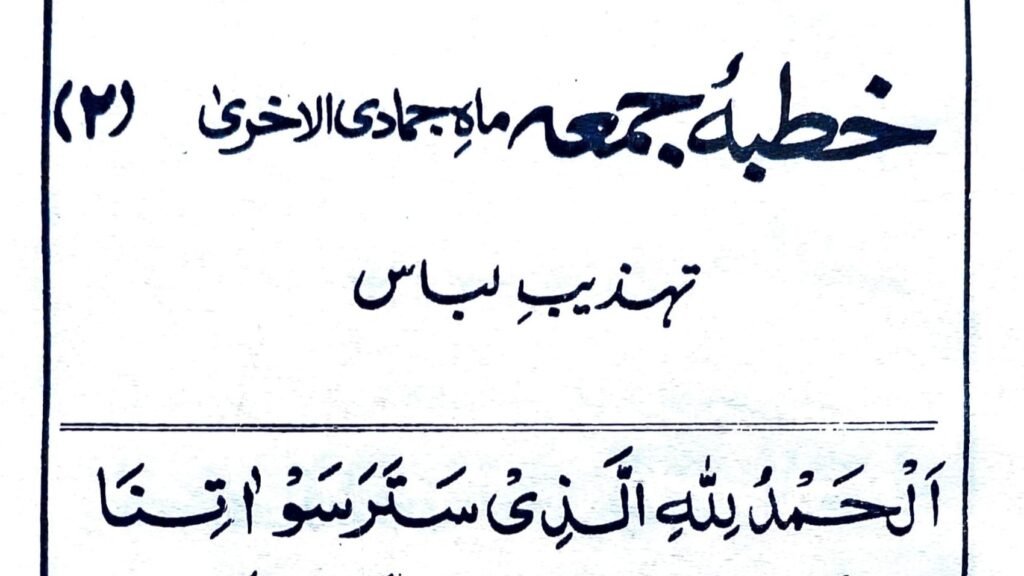 خطبۂ جمعہ ماہِ جمادی الاخریٰ (۲)
تہذیبِ لباس
اَلْحَمْدُ لِلّٰهِ الَّذِیْ سَتَرَ سَوْاٰتِنَا